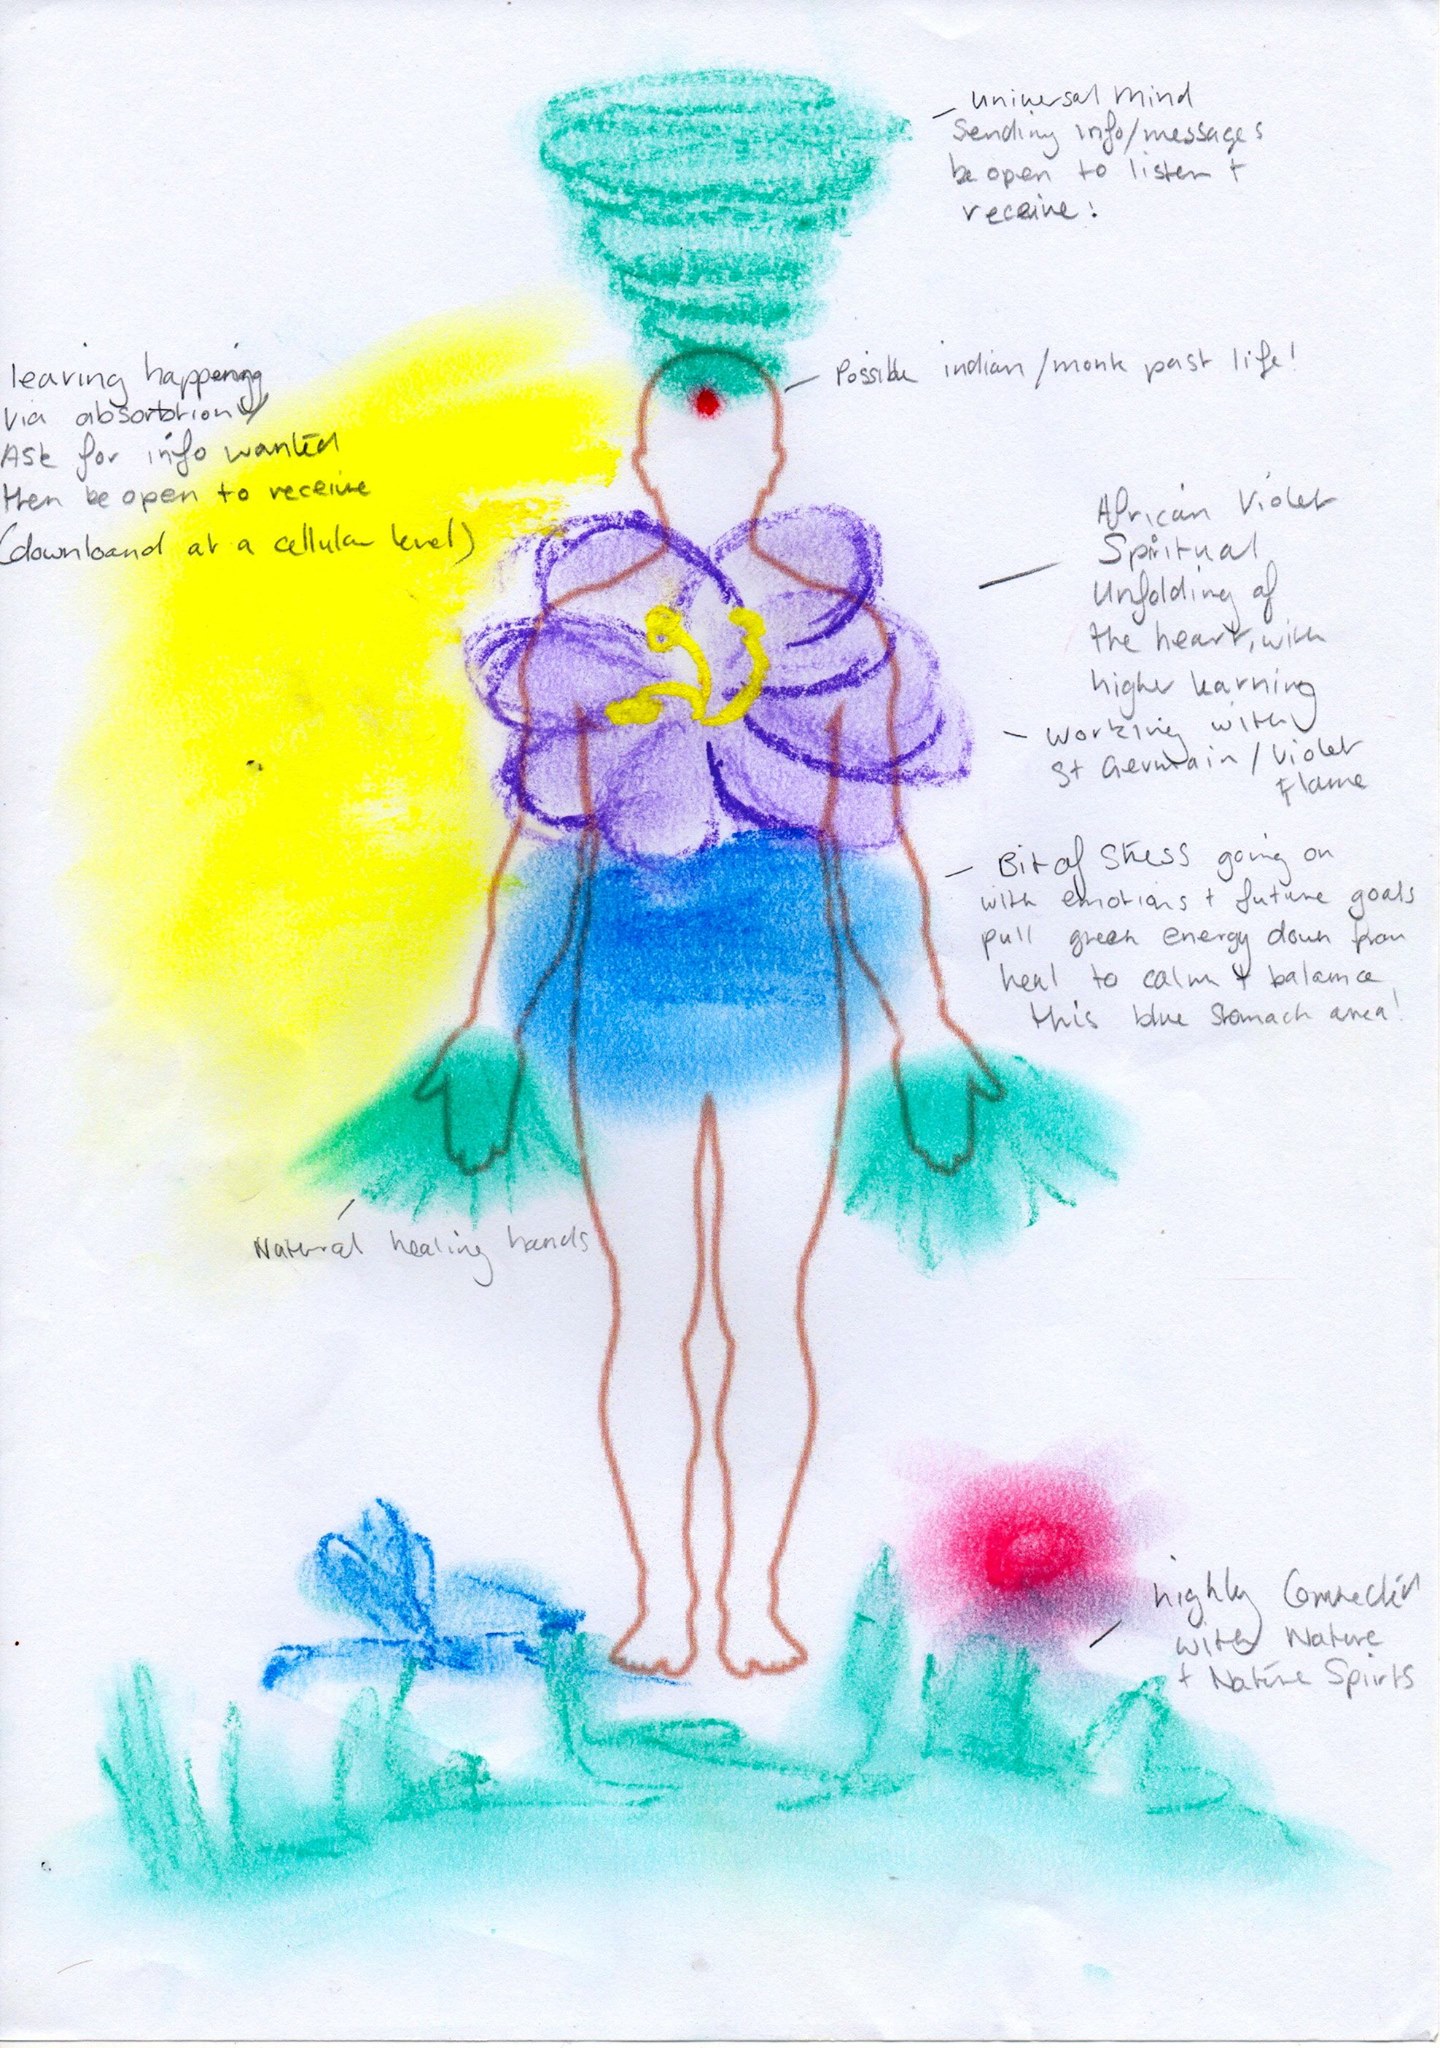 universal mind
Sending info/messages
be open to listen +
receive!
Possible indian/monk past life!
learing happening
via absorbtion
Ask for info wanted
then be open to receive
(download at a cellular level)
African Violet
Spiritual
Unfolding of
the heart, with
higher learning
working with
St Germain / Violet
Flame
Bit of Stress going on
with emotions + future goals
pull green energy down from
heal to calm + balance
this blue stomach area!
Natural healing hands
highly Connected
with Nature
+ Nature Spirits